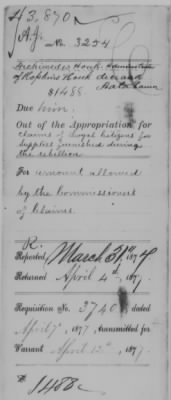 43,870
A.J.
No. 3254
Archimedes Houk
of Hopkins Houk deceased
$1488
Due him.
Out of the Appropriation for
claims of loyal citizens for
supplies furnished during
the rebellion
For amount allowed
by the Commissioners
of Claims.
R.
Reported March 31st 1877
Returned April 4th, 1877.
Requisition No. 3746 dated
April 7th 1877, transmitted for
Warrant April 12th, 1877.
1488